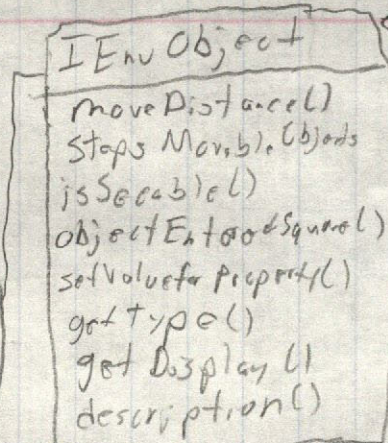 IEnvObject
moveDistance()
stopsMovableObjects
isSeeable()
objectEnteredSquare()
setValueforProperty()
getType()
getDisplay()
description()